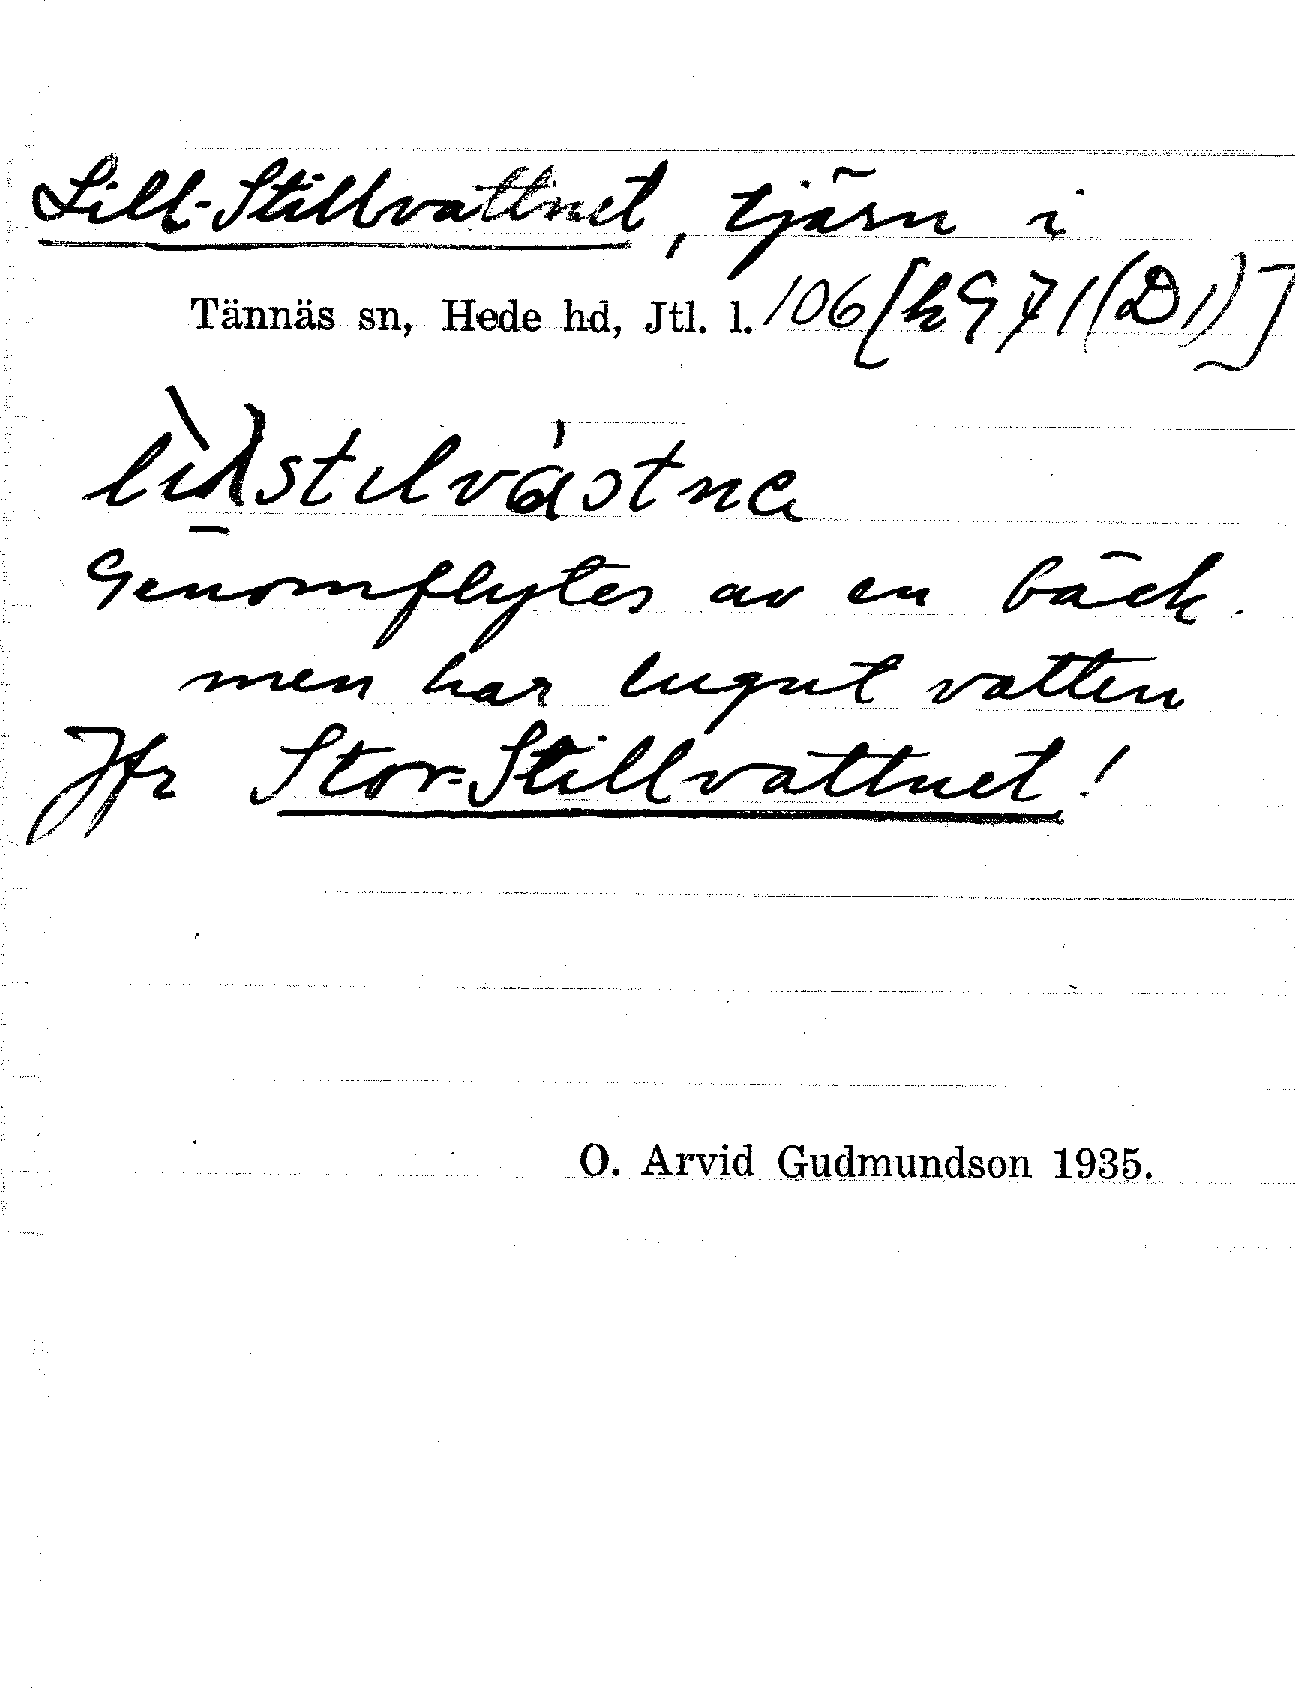 Lill-Stillvattnet, tjärn i
Tännäs sn, Hede hd, Jtl. l. 106 [k971(D1)]
Genomflytes av en bäck.
men har lugnt vatten
Jfr Stor-Stillvattnet!
O. Arvid Gudmundson 1935.